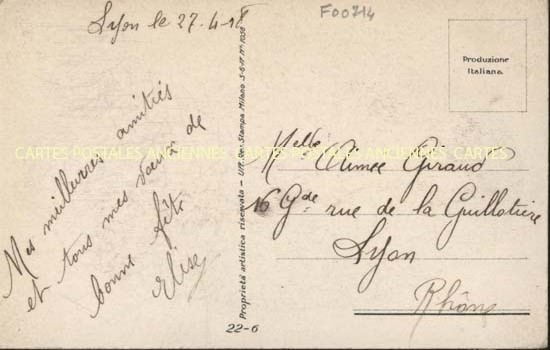 Lyon le 27-4-18
F00714
Mes meilleures amitiés
et tous mes voeux de
bonne fête
Elise
Proprietà artistica riservata - Uff. Rev. Stampa Milano 5-6-17 N° 1036
22-6
Produzione
Italiana.
Melle Aimée Giraud
16 Gde rue de la Guillotière
Lyon
Rhône
CARTES POSTALES ANCIENNES CARTES POSTALES ANCIENNES